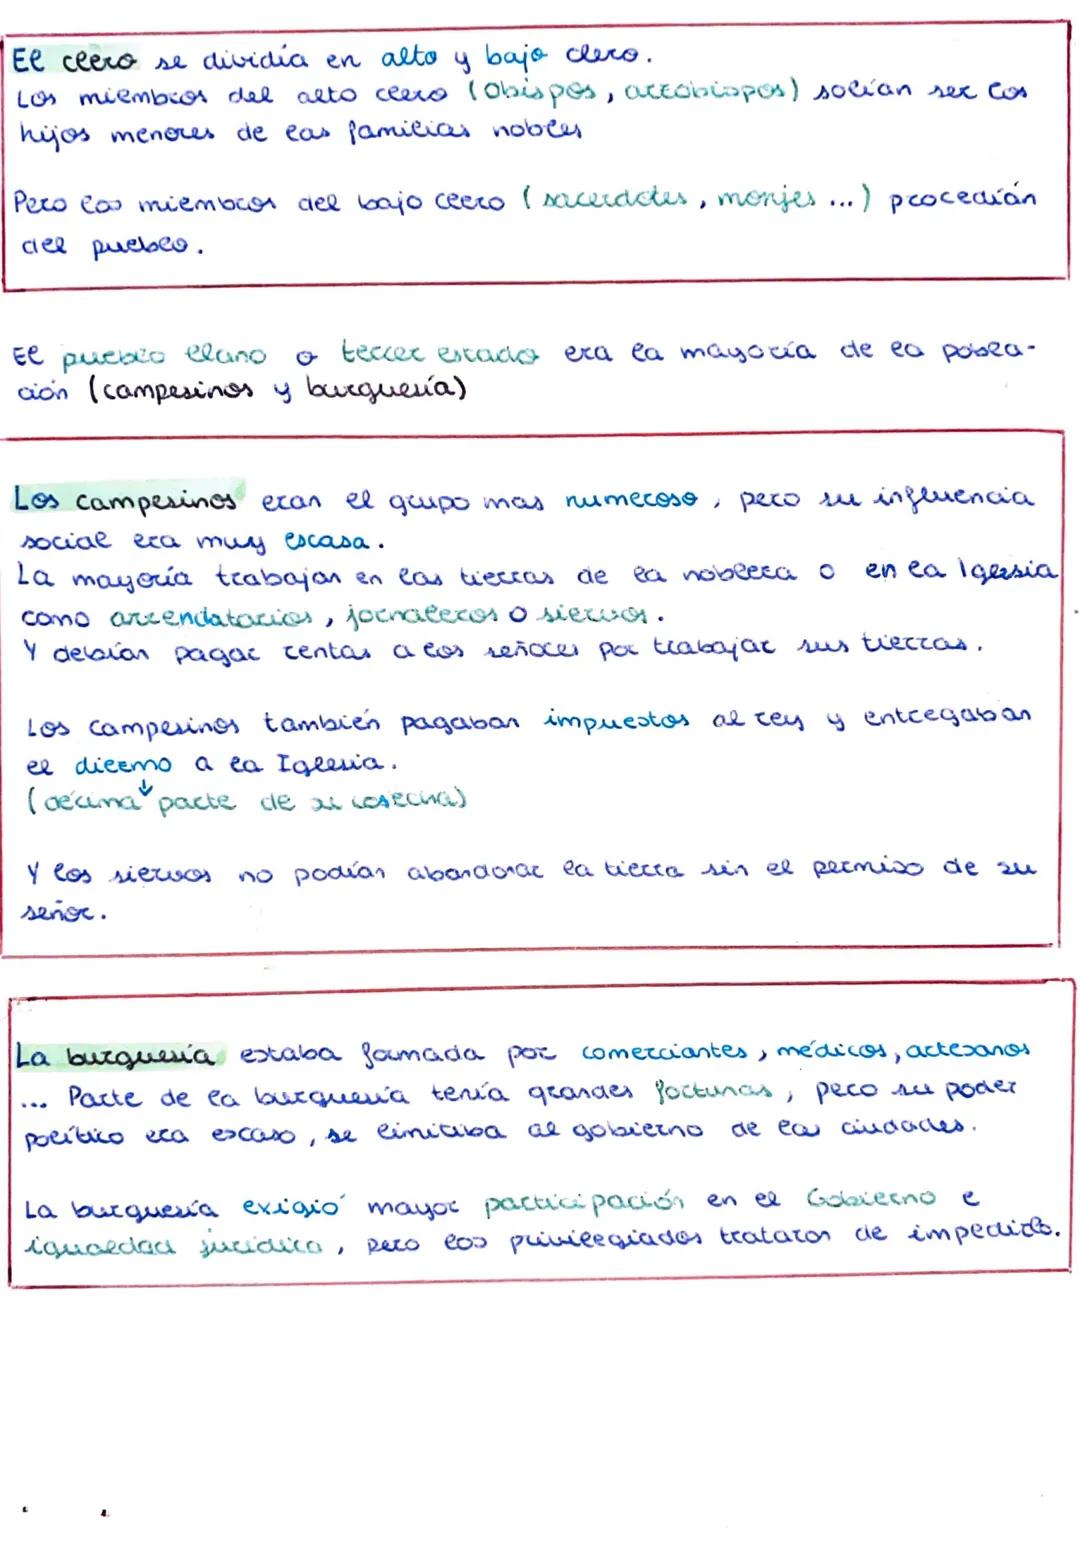 El clero se dividía en alto y bajo clero.
Los miembros del alto clero (Obispos, arzobispos) solían ser los
hijos menores de las familias nobles
Pero los miembros del bajo clero (sacerdotes, monjes ...) procedían
del pueblo.
El pueblo llano o tercer estado era la mayoría de la pobla-
ción (campesinos y burguesía)
Los campesinos eran el grupo mas numeroso, pero su influencia
social era muy escasa.
La mayoría trabajan en las tierras de la nobleza o en la Iglesia
como arrendatarios, jornaleros o siervos.
Y debían pagar rentas a los señores por trabajar sus tierras.
Los campesinos también pagaban impuestos al rey y entregaban
el diezmo a la Iglesia.
(décima parte de su cosecha)
Y los siervos no podían abandonar la tierra sin el permiso de su
señor.
La burguesía estaba formada por comerciantes, médicos, artesanos
... Parte de la burguesía tenía grandes fortunas, pero su poder
político era escaso, se limitaba al gobierno de las ciudades.
La burguesía exigió mayor participación en el Gobierno e
igualdad jurídica, pero los privilegiados trataron de impedirlo.